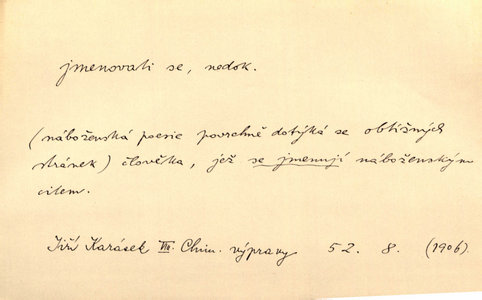 jmenovati se, nedok.
(náboženská poesie povrchně dotýká se obtížných
stránek) člověka, jež se jmenují náboženským
citem.
Jiří Karásek VII. Chim. výpravy 52. 8. (1906).